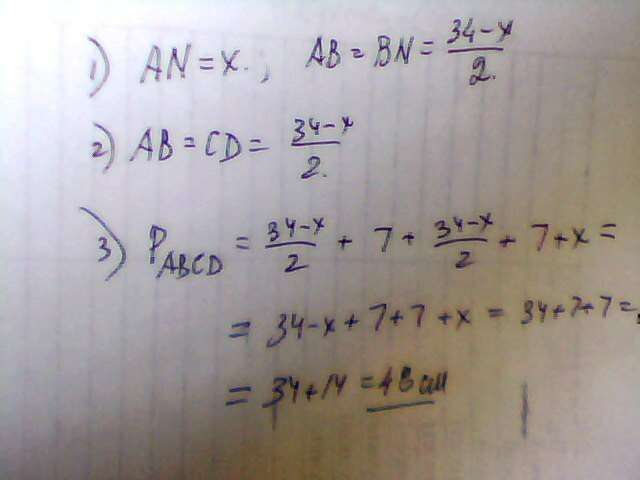 1) AN = x. ; AB = BN = (34-x)/2.
2) AB = CD = (34-x)/2.
3) P_ABCD = (34-x)/2 + 7 + (34-x)/2 + 7 + x =
= 34-x + 7 + 7 + x = 34 + 7 + 7 =
= 34 + 14 = 48 см